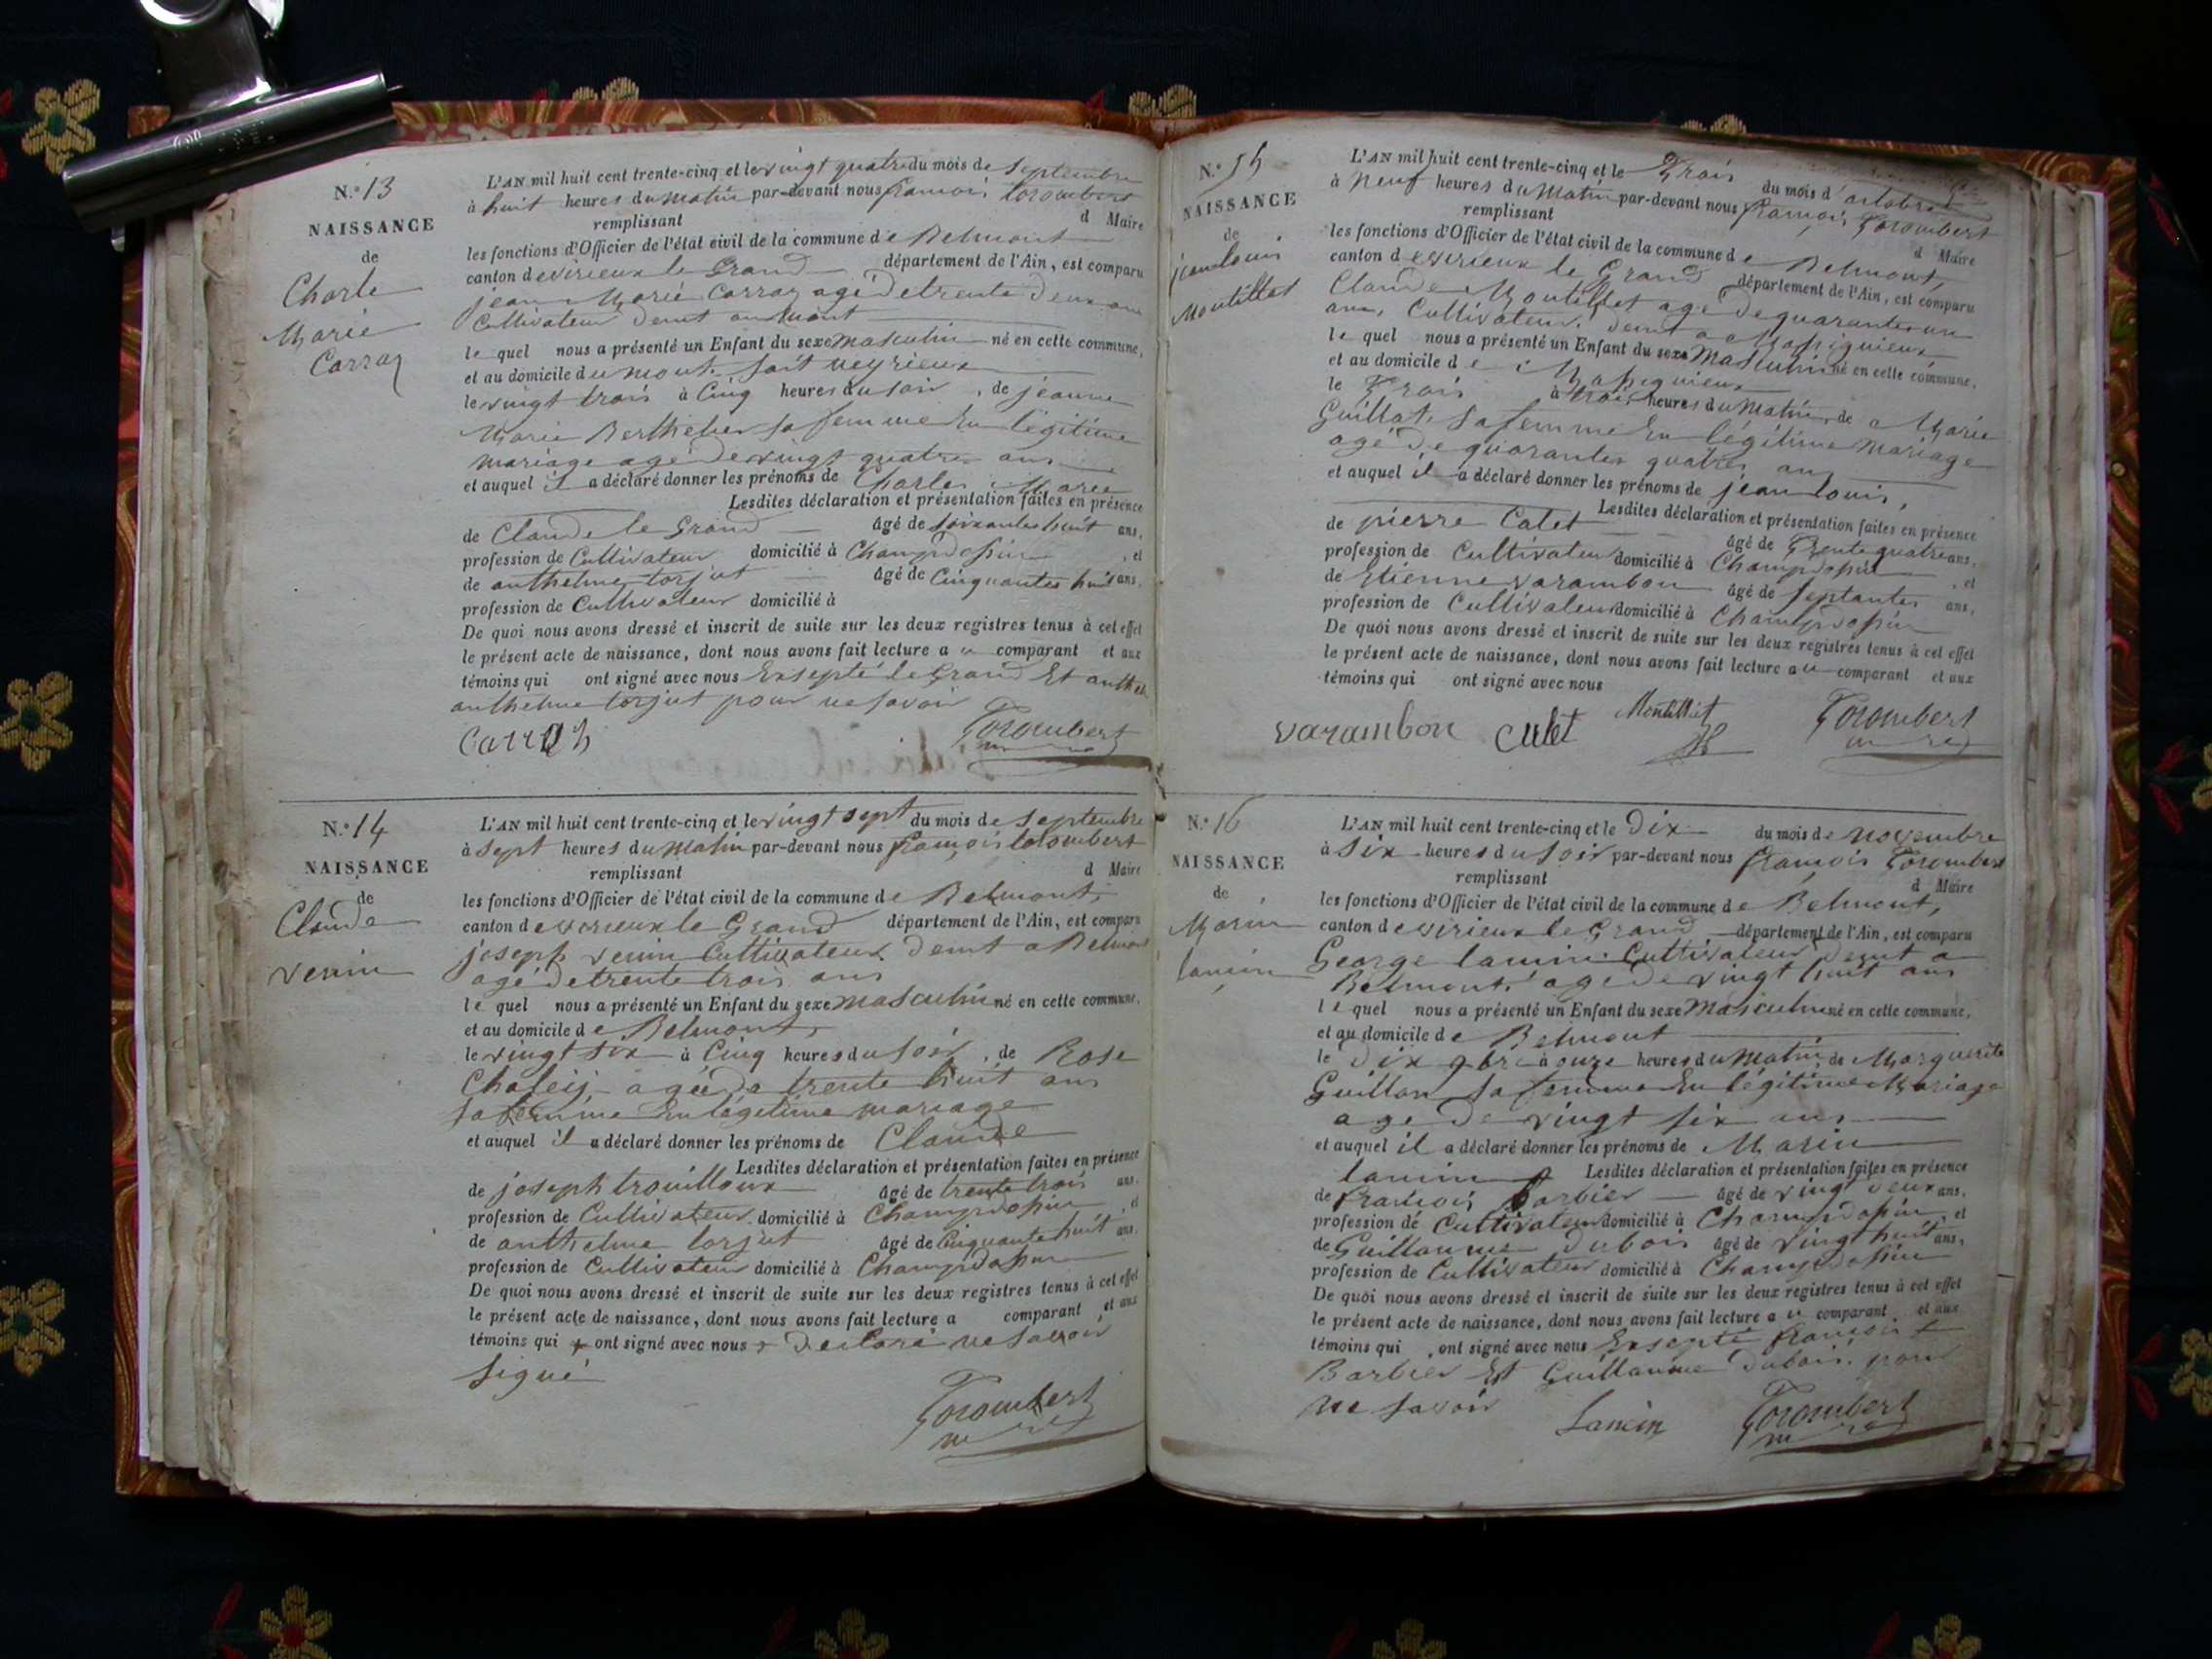 N.° 13
NAISSANCE
de
Charle
Marie
Carraz
L'AN mil huit cent trente-cinq et le vingt quatre du mois de septembre
à huit heures du matin par-devant nous françois Coromber
remplissant d Maire
les fonctions d'Officier de l'état civil de la commune de Belmont
canton de virieux le Grand département de l'Ain, est comparu
jean Marie Carraz agé de trente deux ans
Cultivateur demt au mont
le quel nous a présenté un Enfant du sexe masculin né en cette commune,
et au domicile du mont
le vingt trois à Cinq heures du soir, de jeanne
Marie Berthelier sa femme En légitime
mariage agé de vingt quatre ans
et auquel il a déclaré donner les prénoms de Charles Marie
Lesdites déclaration et présentation faites en présence
de Claude le Grand âgé de soixantes huit ans,
profession de Cultivateur domicilié à Champdossin, et
de anthelme torjut âgé de Cinquantes huit ans,
profession de Cultivateur domicilié à
De quoi nous avons dressé et inscrit de suite sur les deux registres tenus à cet effet
le présent acte de naissance, dont nous avons fait lecture au comparant et aux
témoins qui ont signé avec nous Exsepté le Grand Et anthel
anthelme torjut pour ne savoir
Gorombert
N.° 14
NAISSANCE
de
Claude
venin
L'AN mil huit cent trente-cinq et le vingt sept du mois de septembre
à sept heures du matin par-devant nous françois Colombert
remplissant d Maire
les fonctions d'Officier de l'état civil de la commune de Belmont,
canton de virieux le Grand département de l'Ain, est comparu
joseph venin Cultivateur demt a Belmont
agé de trente trois ans
le quel nous a présenté un Enfant du sexe masculin né en cette commune,
et au domicile de Belmont,
le vingt six à Cinq heures du soir, de Rose
agée de trente huit ans
sa femme En légitime mariage
et auquel il a déclaré donner les prénoms de Claude
Lesdites déclaration et présentation faites en présence
de joseph trouilloux âgé de trente trois ans,
profession de Cultivateur domicilié à Champdossin, et
de anthelme torjut âgé de Cinquante huit ans,
profession de Cultivateur domicilié à Champdossin
De quoi nous avons dressé et inscrit de suite sur les deux registres tenus à cet effet
le présent acte de naissance, dont nous avons fait lecture a comparant et aux
témoins qui + ont signé avec nous + declaré ne savoir
signé
Gorombert
N.° 15
NAISSANCE
de
jean louis
Moutillet
L'AN mil huit cent trente-cinq et le Trois du mois d'octobre
à neuf heures du matin par-devant nous françois Gorombert
remplissant d Maire
les fonctions d'Officier de l'état civil de la commune de Belmont,
canton de virieux le Grand département de l'Ain, est comparu
Claude Moutillet agé de quarante un
ans, Cultivateur demt a Massignieux
le quel nous a présenté un Enfant du sexe Masculin né en cette commune,
et au domicile de Massignieux
le Trois à trois heures du Matin, de Marie
Guillat sa femme En légitime mariage
agé de quarantes quatres ans
et auquel il a déclaré donner les prénoms de jean louis,
Lesdites déclaration et présentation faites en présence
de pierre Calet âgé de Trente quatre ans,
profession de Cultivateur domicilié à Champdossin, et
de Etienne varambon âgé de septantes ans,
profession de Cultivateur domicilié à Champdossin
De quoi nous avons dressé et inscrit de suite sur les deux registres tenus à cet effet
le présent acte de naissance, dont nous avons fait lecture au comparant et aux
témoins qui ont signé avec nous
varambon Culet Montilliet Gorombert
N.° 16
NAISSANCE
de
Marin
lanin
L'AN mil huit cent trente-cinq et le Dix du mois de novembre
à six heures du soir par-devant nous françois Gorombert
remplissant d Maire
les fonctions d'Officier de l'état civil de la commune de Belmont,
canton de virieux le Grand département de l'Ain, est comparu
George lanin Cultivateur demt a
Belmont agé de vingt huit ans
le quel nous a présenté un Enfant du sexe Masculin né en cette commune,
et au domicile de Belmont
le dix 9bre à onze heures du Matin, de Marguerite
Guillon sa femme En légitime Mariage
age de vingt six ans
et auquel il a déclaré donner les prénoms de Marin
lanin Lesdites déclaration et présentation faites en présence
de françois Barbier âgé de vingt deux ans,
profession de Cultivateur domicilié à Champdossin, et
de Guillaume Dubois âgé de vingt huit ans,
profession de Cultivateur domicilié à Champdossin
De quoi nous avons dressé et inscrit de suite sur les deux registres tenus à cet effet
le présent acte de naissance, dont nous avons fait lecture au comparant et aux
témoins qui ont signé avec nous Exsepté françois
Barbier Et Guillaume Dubois pour
ne savoir
Lanin Gorombert